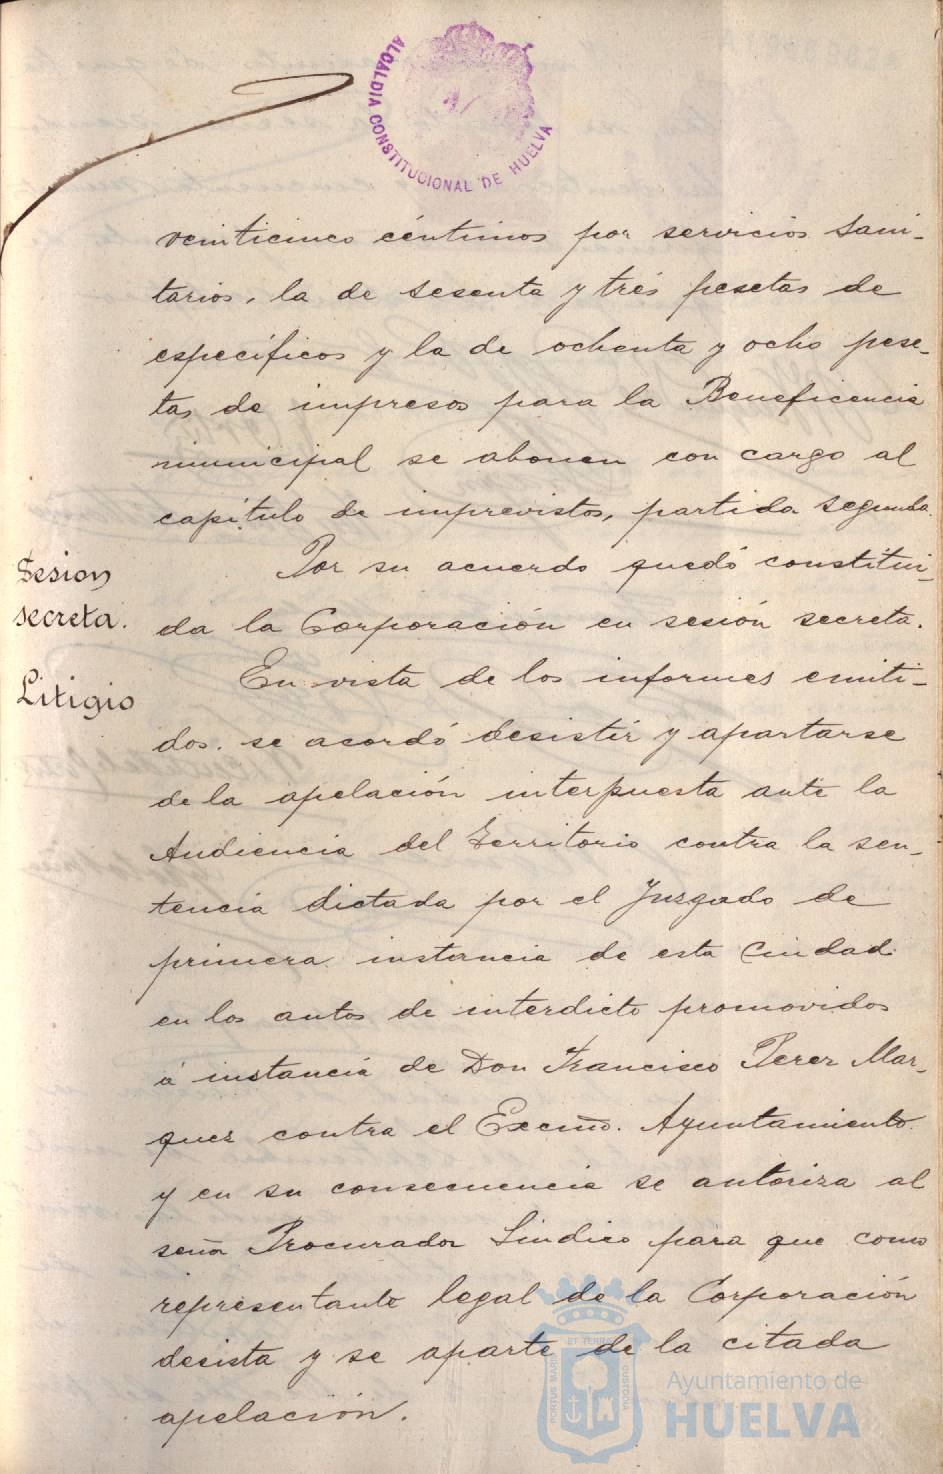 ALCALDIA CONSTITUCIONAL DE HUELVA
veinticinco céntimos por servicios sani-
tarios, la de sesenta y trés pesetas de
específicos y la de ochenta y ocho pese-
tas de impresos para la Beneficencia
municipal se abonen con cargo al
capítulo de imprevistos, partida segunda.
Sesion
secreta.
Por su acuerdo quedó constitui-
da la Corporación en sesión secreta.
Litigio
En vista de los informes emiti-
dos. se acordó desistir y apartarse
de la apelación interpuesta ante la
Audiencia del Territorio contra la sen-
tencia dictada por el Juzgado de
primera instancia de esta Ciudad
en los autos de interdicto promovidos
á instancia de Don Francisco Perez Mar-
quez contra el Excmo. Ayuntamiento
y en su consecuencia se autoriza al
señor Procurador Síndico para que como
representante legal de la Corporación
desista y se aparte de la citada
apelación.
PORTUS MARIS ET TERRAE CUSTODIA
Ayuntamiento de
HUELVA